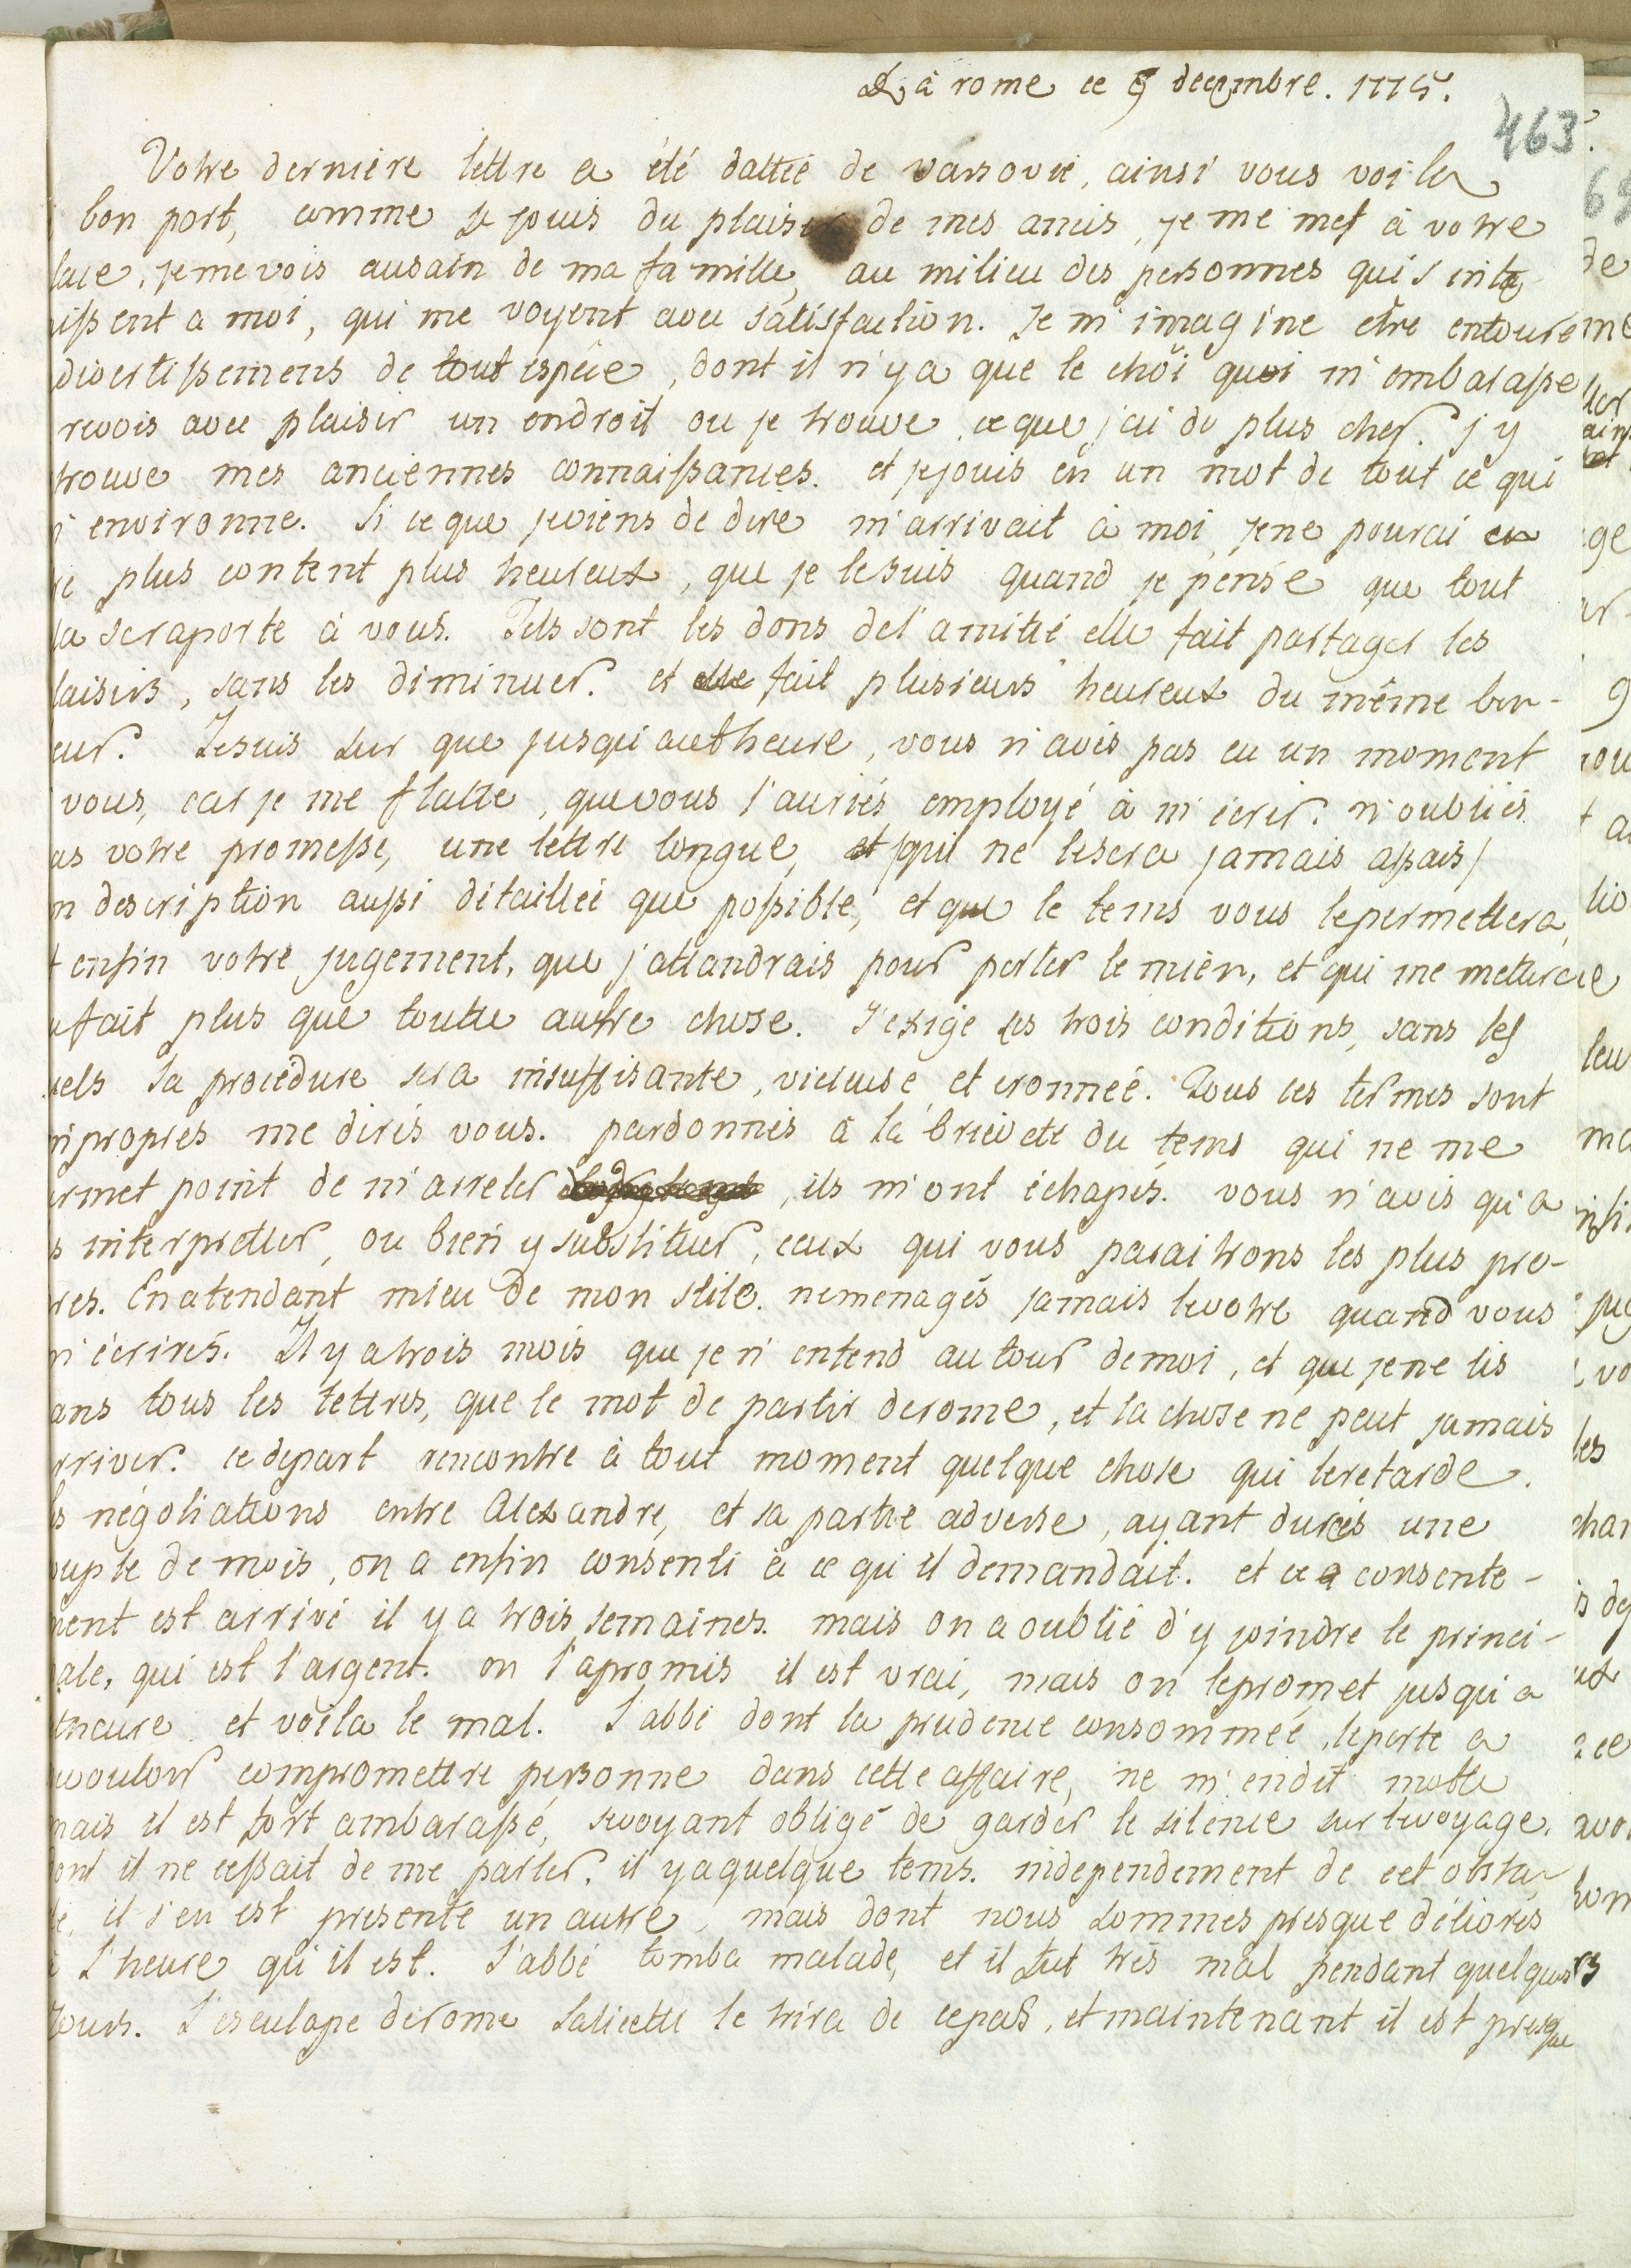 à rome ce 9 decembre. 1775.
463
Votre derniere lettre a été dattée de varsovie, ainsi vous voila
bon port, comme je jouis du plaisir de mes amis, je me met à votre
lace, je me vois ausain de ma famille, au milieu des personnes qui s'inté
rissent a moi, qui me voyent avec satisfaction. Je m'imagine etre entouré
divertissemens de tout espéce, dont il n'y a que le choi qui m'embarasse
revois avec plaisir un endroit ou je trouve ce que j'ai de plus cher. j'y
trouve mes anciennes connaissances. et je jouis en un mot de tout ce qui
m'environne. Si ce que je viens de dire m'arrivait à moi, je ne pourai
re plus content plus heureux, que je le suis quand je pense que tout
la se raporte à vous. Tels sont les dons de l'amitié elle fait partager les
laisirs, sans les diminuer. et elle fait plusieurs heureux du même bon-
eur. Je suis sur que jusqu'autheure, vous n'avés pas eu un moment
vous, car je me flatte, que vous l'auriés employé à m'écrir. n'oubliés
as votre promesse, une lettre longue, /qui ne le sera jamais assais/
n description aussi détaillée que possible, et que le tems vous le permettera,
t enfin votre jugement, que j'attandrais pour porter le mien, et qui me mettera
u fait plus que toutte autre chose. J'exige ces trois conditions, sans les
uels la procédure sera insuffisante, vicieuse et eronnée. Tous ces termes sont
npropres me dirés vous. pardonnés à la brieveté du tems qui ne me
ermet point de m'arreter, ils m'ont échapés. vous n'avés qu'a
s interpretter, ou bien y substituer, ceux qui vous paraitrons les plus pro-
res. En atendant mieu de mon stile. ne menagés jamais le votre quand vous
m'écrirés. Il y a trois mois que je n'entend autour de moi, et que je ne lis
ans tous les lettres, que le mot de partir de rome, et la chose ne peut jamais
rriver. ce depart rencontre à tout moment quelque chose qui le retarde.
s négotiations entre Alexandre, et sa partie adverse, ayant durés une
ouple de mois, on a enfin consenti à ce qu'il demandait. et ce consente-
ment est arrivé il y a trois semaines. mais on a oublié d'y joindre le princi-
pale, qui est l'argent. on l'a promis il est vrai, mais on le promet jusqu'a
theure et voila le mal. L'abbé dont la prudence consommée, le porte a
vouloir compromettre personne dans cette affaire, ne m'en dit motte
mais il est fort ambarassé, se voyant obligé de garder le silence sur le voyage.
dont il ne cessait de me parler, il y a quelque tems. independement de cet obsta-
le, il s'en est presenté un autre, mais dont nous sommes presque délivrés
à l'heure qu'il est. L'abbé tomba malade, et il fut très mal pendant quelques
jours. L'esculape de rome Salicetti le tira de ce pas, et maintenant il est presque